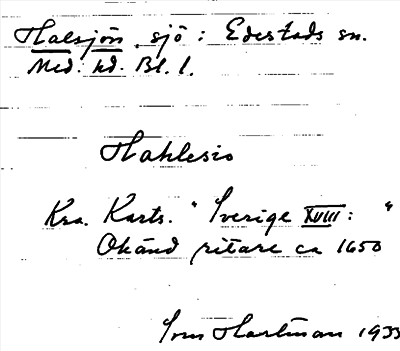 Halsjön, sjö: Edestads sn.
Med. hd. Bl. l.
Hahlesio
Kra. Karts. "Sverige XVIII: "
Okänd ritare ca 1650
Hartman 1935